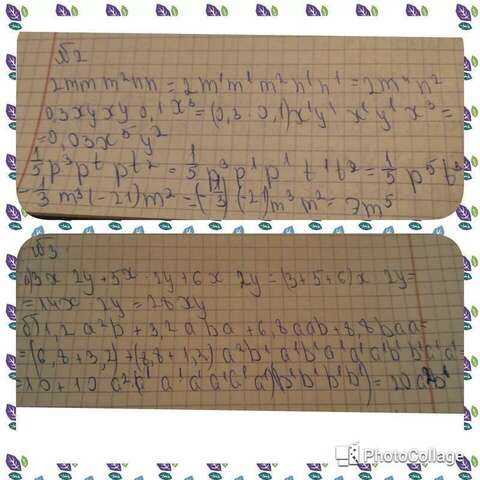 №2
2mm m²nn = 2m¹m¹m²n¹n¹ = 2m⁴n²
0,3xyxy 0,1x³ = (0,3·0,1)x¹y¹ x¹y¹ x³ =
= 0,03x⁵y²
1/5 p³pt pt² = 1/5 p³p¹p¹ t¹t² = 1/5 p⁵t³
-1/3 m³(-21)m² = (-1/3)(-21)m³m² = 7m⁵
№3
а) 3x 2y + 5x · 2y + 6x 2y = (3+5+6)x 2y =
= 14x 2y = 28xy
б) 1,2a²b + 3,2aba + 6,8aab + 8,8baa =
= (6,8+3,2) + (8,8+1,2) a²b¹ a¹b¹a¹ a¹a¹b¹ b¹a¹a¹ =
= 10 + 10 a²·(a¹ a¹a¹a¹a¹a¹)(b¹b¹b¹b¹) = 20a²b¹
PhotoCollage